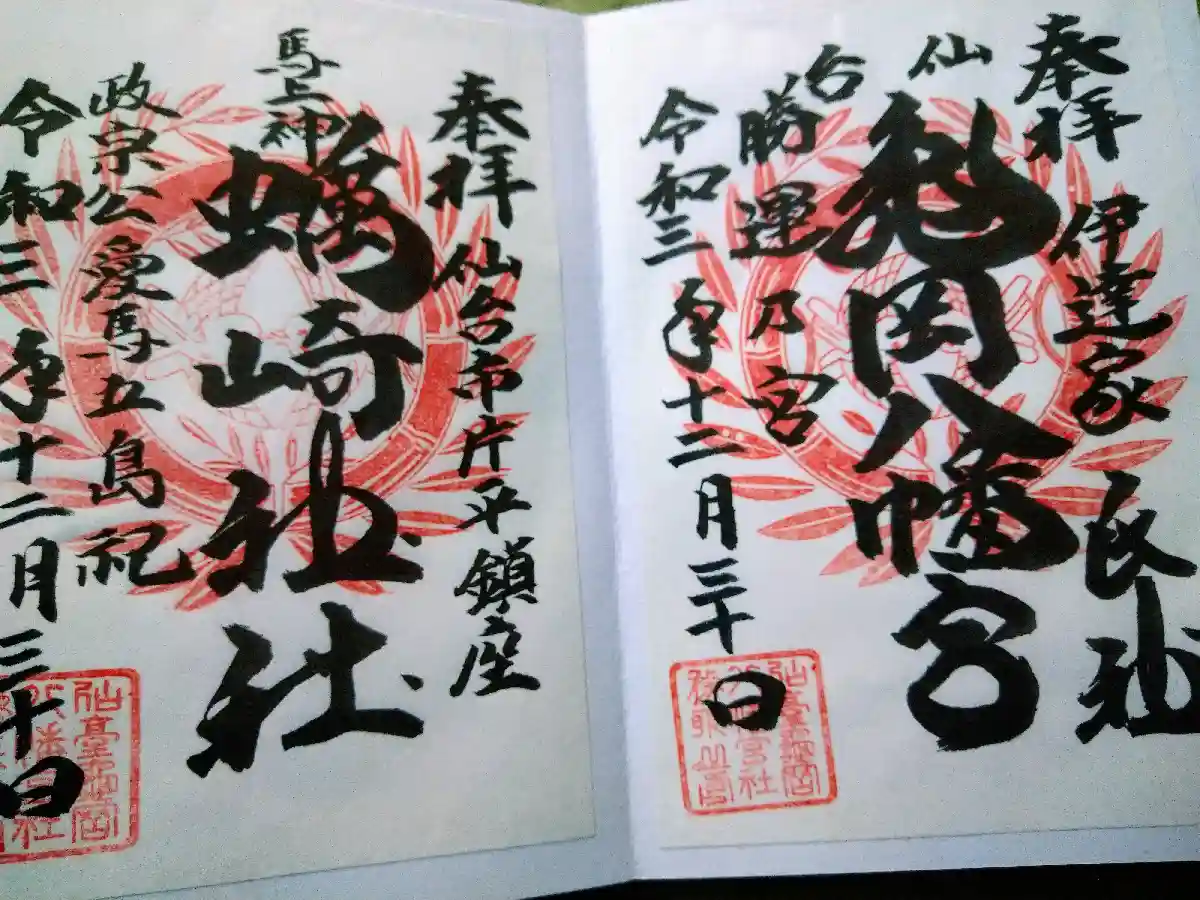 奉拝
伊達家氏神
仙台
亀岡八幡宮
勝運乃宮
令和三年十二月三十日
奉拝 仙台市片平鎮座
馬上神
蠣崎神社
政宗公愛馬五島祀
令和三年十二月三十日